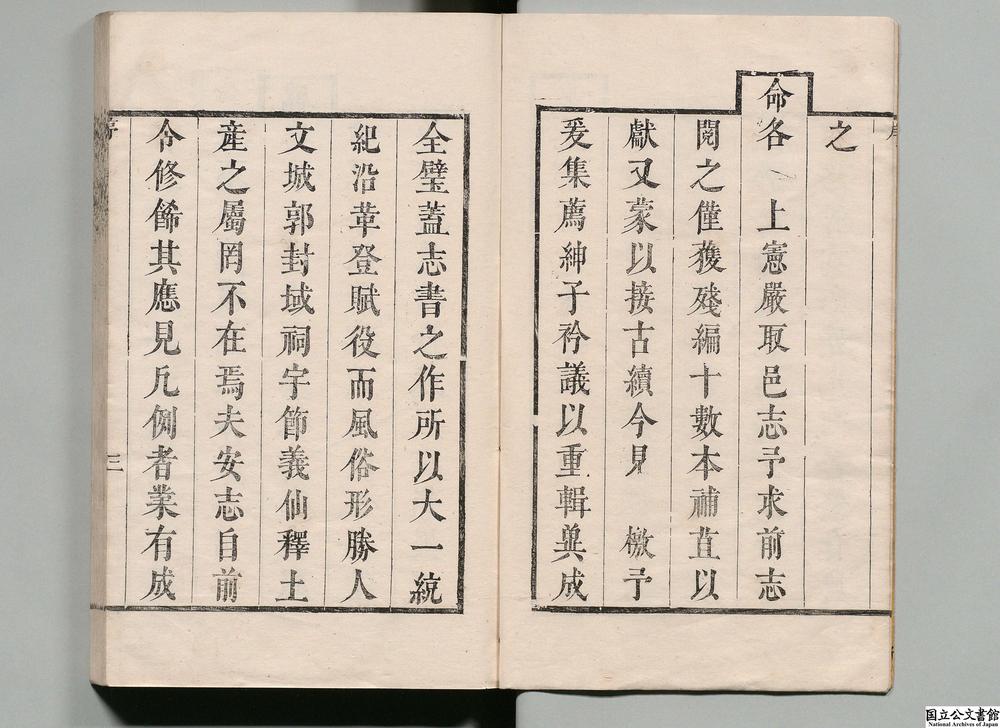 之
命各 上憲嚴取邑志予求前志
閱之僅獲殘編十數本補苴以
獻又蒙以接古續今見 檄予
爰集薦紳子衿議以重輯兾成
全璧蓋志書之作所以大一統
紀沿革登賦役而風俗形勝人
文城郭封域祠宇節義仙釋土
産之屬罔不在焉夫安志自前
令修餙其應見凡例者業有成
序
三
国立公文書館
National Archives of Japan